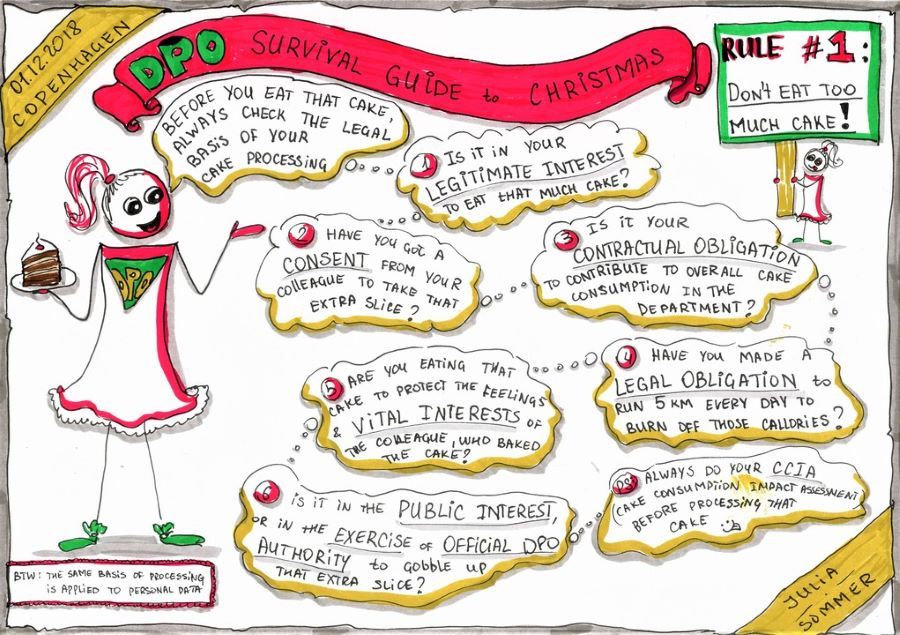 01.12.2018
COPENHAGEN
DPO SURVIVAL GUIDE to CHRISTMAS
RULE #1:
DON'T EAT TOO
MUCH CAKE!
BEFORE YOU EAT THAT CAKE,
ALWAYS CHECK THE LEGAL
BASIS OF YOUR
CAKE PROCESSING
1 IS IT IN YOUR
LEGITIMATE INTEREST
TO EAT THAT MUCH CAKE?
2 HAVE YOU GOT A
CONSENT FROM YOUR
COLLEAGUE TO TAKE THAT
EXTRA SLICE?
3 IS IT YOUR
CONTRACTUAL OBLIGATION
TO CONTRIBUTE TO OVERALL CAKE
CONSUMPTION IN THE
DEPARTMENT?
DPO
4 HAVE YOU MADE A
LEGAL OBLIGATION to
RUN 5 KM EVERY DAY TO
BURN OFF THOSE CALLORIES?
5 ARE YOU EATING THAT
CAKE TO PROTECT THE FEELINGS
& VITAL INTERESTS OF
THE COLLEAGUE, WHO BAKED
THE CAKE?
6 IS IT IN THE PUBLIC INTEREST,
OR IN THE EXERCISE OF OFFICIAL DPO
AUTHORITY to GOBBLE UP
THAT EXTRA SLICE?
PS: ALWAYS DO YOUR CCIA
(CAKE CONSUMPTION IMPACT ASSESSMENT)
BEFORE PROCESSING THAT
CAKE
BTW: THE SAME BASIS OF PROCESSING
IS APPLIED TO PERSONAL DATA
JULIA
SOMMER